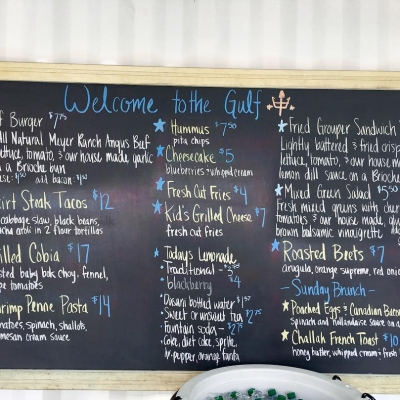 Welcome to the Gulf
f Burger $7.75
ll Natural Meyer Ranch Angus Beef
lettuce, tomato, & our house made garlic
n a Brioche bun
add bacon: $1.50
irt Steak Tacos $12
cabbage slaw, black beans,
in 2 flour tortillas
illed Cobia $17
sted baby bok choy, fennel,
pe tomatoes
rimp Penne Pasta $14
matoes, spinach, shallots,
mesan cream sauce
Hummus $7.50
pita chips
Cheesecake $5
blueberries & whipped cream
Fresh Cut Fries $4
Kid's Grilled Cheese $7
fresh cut fries
Today's Lemonade
Traditional -
blackberry $4
water $1.50
Sweet or unsweet tea $2.75
Fountain soda - $2.75
Coke, diet coke, sprite,
dr. pepper, orange fanta
Fried Grouper Sandwich
Lightly battered & fried crisp
lettuce, tomato, & our house m
lemon dill sauce on a Brioche
Mixed Green Salad $5.50
fresh mixed greens with cher
tomatoes & our house made, glu
brown balsamic vinaigrette
add
Roasted Beets $7
arugula, orange supreme, red onio
- Sunday Brunch -
Poached Eggs & Canadian Bacon
spinach and hollandaise sauce on a
Challah French Toast $10
honey butter, whipped cream & fresh